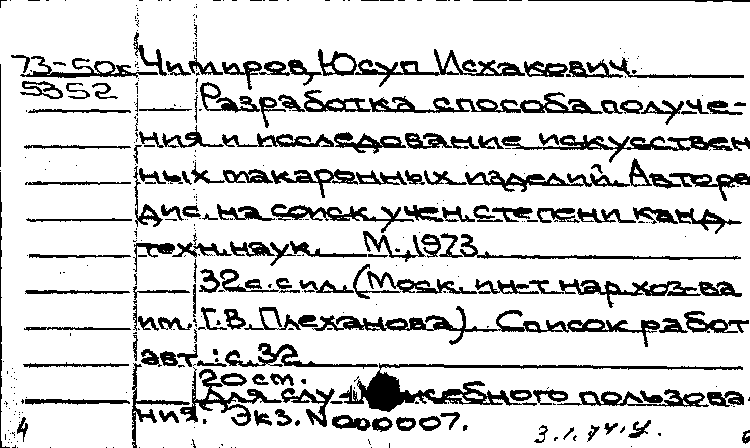 73-50к Чимиров, Юсуп Исхакович.
5352 Разработка способа получе-
ния и исследование искусствен
ных макаронных изделий. Авторе
дис. на соиск. учен. степени канд.
техн. наук. М., 1973.
32 с. с ил. (Моск. ин-т нар. хоз-ва
им. Г.В. Плеханова). Список работ
авт.: с. 32.
20 ст.
Для слу- жебного пользова-
ния. Экз. N000007.
4